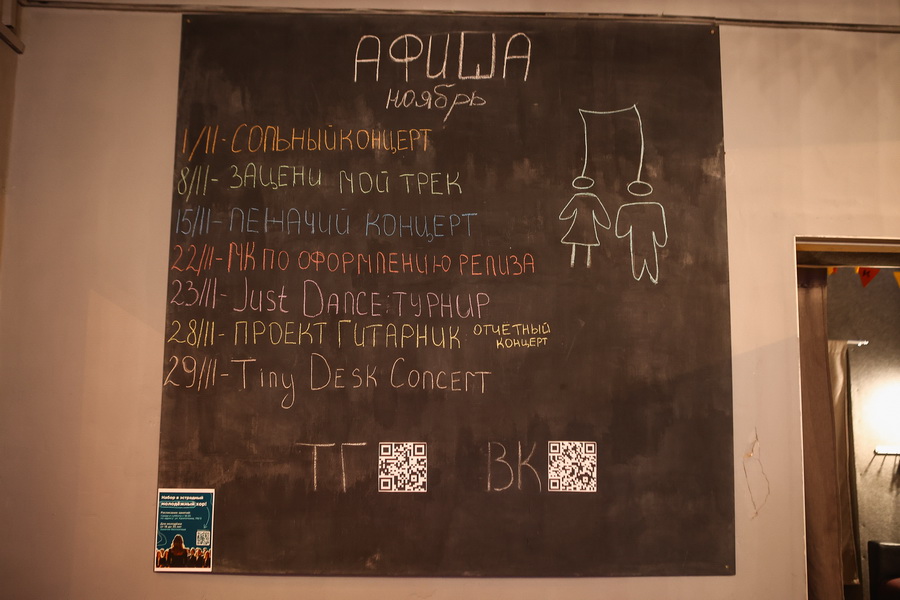 АФИША
ноябрь
1/11-СОЛЬНЫЙ КОНЦЕРТ
8/11-ЗАЦЕНИ МОЙ ТРЕК
15/11-ЛЕЖАЧИЙ КОНЦЕРТ
22/11-МК ПО ОФОРМЛЕНИЮ РЕЛИЗА
23/11-Just Dance:ТУРНИР
28/11-ПРОЕКТ ГИТАРНИК ОТЧЕТНЫЙ
КОНЦЕРТ
29/11-Tiny Desk Concert
ТГ ВК
Набор в эстрадный
молодёжный хор!